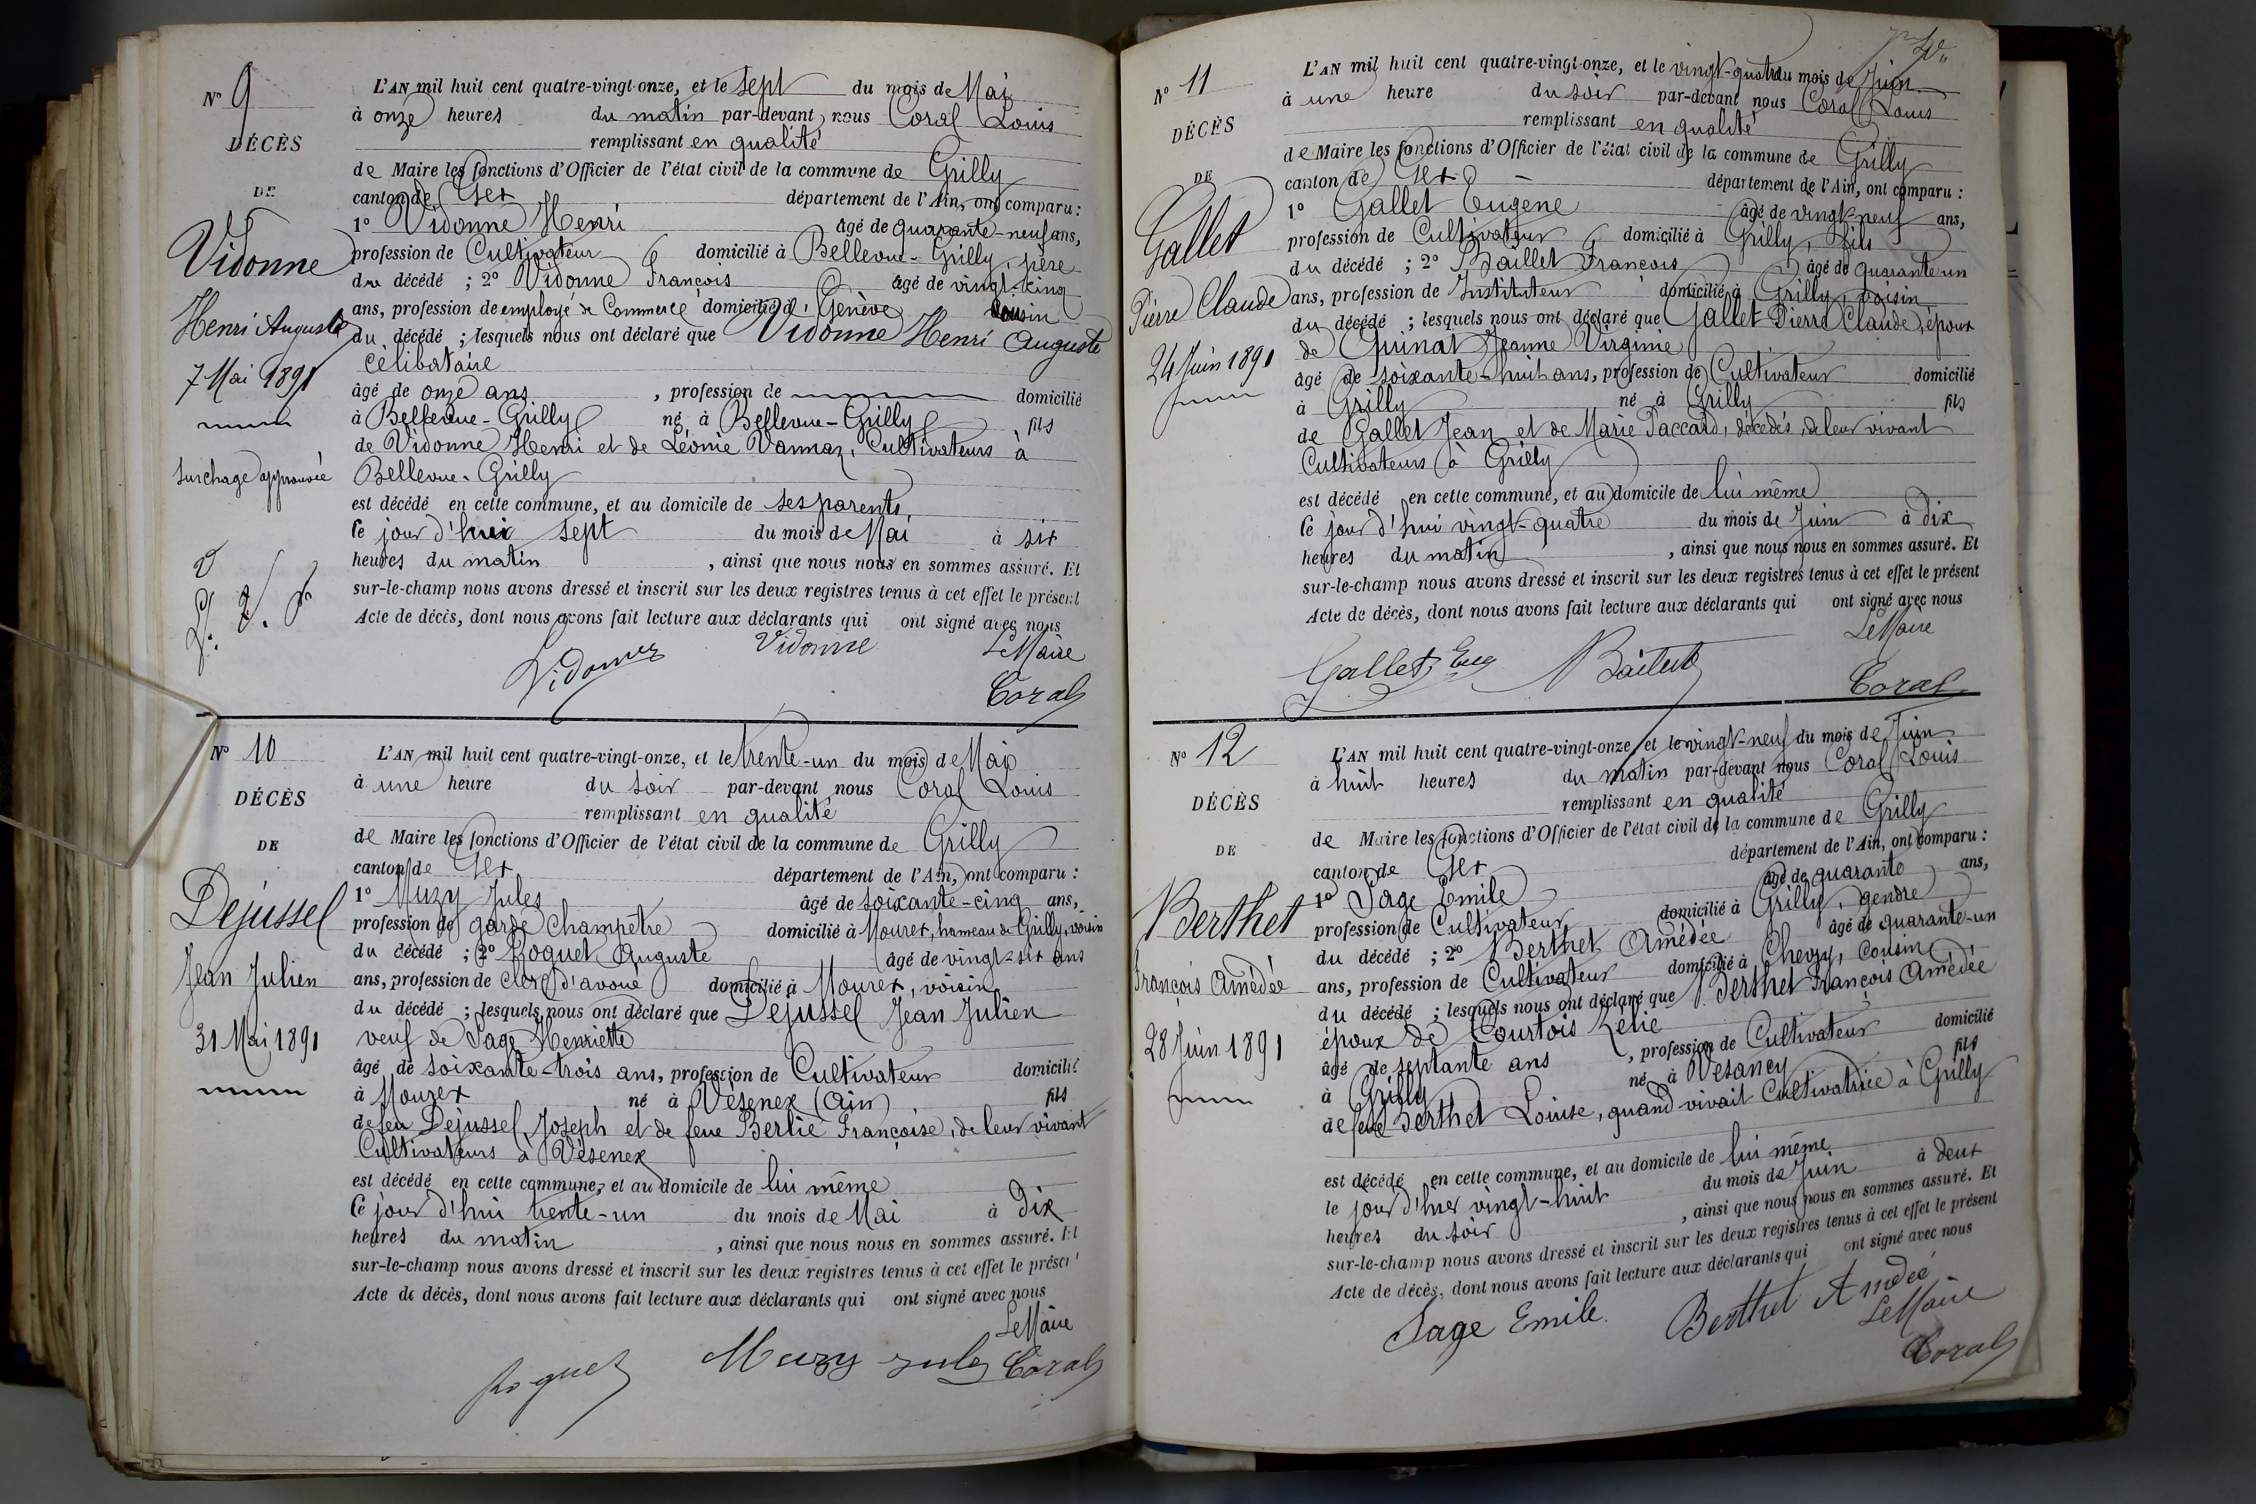 N° 9
DÉCÈS
DE
Vidonne
Henri Auguste
7 Mai 1891
Surchage approuvée
L'AN mil huit cent quatre-vingt-onze, et le sept du mois de Mai
à onze heures du matin par-devant nous Coral Louis
remplissant en qualité
de Maire les fonctions d'Officier de l'état civil de la commune de Grilly
canton de Gex département de l'Ain, ont comparu :
1° Vidonne Henri âgé de quarante-neuf ans,
profession de Cultivateur domicilié à Bellevue-Grilly, père
du décédé ; 2° Vidonne François âgé de vingt-cinq
ans, profession de employé de Commerce domicilié à Genève cousin
du décédé ; lesquels nous ont déclaré que Vidonne Henri Auguste
célibataire
âgé de onze ans, profession de domicilié
à Bellevue-Grilly né à Bellevue-Grilly fils
de Vidonne Henri et de Léonie Vannaz, Cultivateurs à
Bellevue-Grilly
est décédé en cette commune, et au domicile de ses parents,
Ce jour d'hui sept du mois de Mai à six
heures du matin, ainsi que nous nous en sommes assuré. Et
sur-le-champ nous avons dressé et inscrit sur les deux registres tenus à cet effet le présent
Acte de décès, dont nous avons fait lecture aux déclarants qui ont signé avec nous
Vidonne Le Maire
Coral
N° 10
DÉCÈS
DE
Dejussel
Jean Julien
31 Mai 1891
L'AN mil huit cent quatre-vingt-onze, et le trente-un du mois de Mai
à une heure du soir par-devant nous Coral Louis
remplissant en qualité
de Maire les fonctions d'Officier de l'état civil de la commune de Grilly
canton de Gex département de l'Ain, ont comparu :
1° Muzy Jules âgé de soixante-cinq ans,
profession de garde champêtre domicilié à Mourex, hameau de Grilly, voisin
du décédé ; 2° Roquet Auguste âgé de vingt-six ans
ans, profession de clerc d'avoué domicilié à Mourex, voisin
du décédé ; lesquels nous ont déclaré que Dejussel Jean Julien
veuf de Sage Henriette
âgé de soixante-trois ans, profession de Cultivateur domicilié
à Mourex né à Vésenex (Ain) fils
de feu Dejussel Joseph et de feue Berlie Françoise, de leur vivant
Cultivateurs à Vésenex
est décédé en cette commune, et au domicile de lui même
Ce jour d'hui trente-un du mois de Mai à Dix
heures du matin, ainsi que nous nous en sommes assuré. Et
sur-le-champ nous avons dressé et inscrit sur les deux registres tenus à cet effet le présent
Acte de décès, dont nous avons fait lecture aux déclarants qui ont signé avec nous
Le Maire
Roquet Muzy Jules Coral
N° 11
DÉCÈS
DE
Gallet
Pierre Claude
24 Juin 1891
L'AN mil huit cent quatre-vingt-onze, et le vingt-quatre du mois de Juin
à une heure du soir par-devant nous Coral Louis
remplissant en qualité
de Maire les fonctions d'Officier de l'état civil de la commune de Grilly
canton de Gex département de l'Ain, ont comparu :
1° Gallet Eugène âgé de vingt-neuf ans,
profession de Cultivateur domicilié à Grilly, fils
du décédé ; 2° Baillet François âgé de quarante un
ans, profession de Instituteur domicilié à Grilly, voisin
du décédé ; lesquels nous ont déclaré que Gallet Pierre Claude, époux
de Guinat Jeanne Virginie
âgé de soixante-huit ans, profession de Cultivateur domicilié
à Grilly né à Grilly fils
de Gallet Jean et de Marie Paccard, décédés, de leur vivant
Cultivateurs à Grilly
est décédé en cette commune, et au domicile de lui même
Ce jour d'hui vingt-quatre du mois de Juin à dix
heures du matin, ainsi que nous nous en sommes assuré. Et
sur-le-champ nous avons dressé et inscrit sur les deux registres tenus à cet effet le présent
Acte de décès, dont nous avons fait lecture aux déclarants qui ont signé avec nous
Le Maire
Gallet Eug Coral
N° 12
DÉCÈS
DE
Berthet
François Amédée
28 Juin 1891
L'AN mil huit cent quatre-vingt-onze, et le vingt-neuf du mois de Juin
à huit heures du matin par-devant nous Coral Louis
remplissant en qualité
de Maire les fonctions d'Officier de l'état civil de la commune de Grilly
canton de Gex département de l'Ain, ont comparu :
1° Sage Emile âgé de quarante ans,
profession de Cultivateur domicilié à Grilly, gendre
du décédé ; 2° Berthet Amédée âgé de quarante-un
ans, profession de Cultivateur domicilié à Chevry, cousin
du décédé ; lesquels nous ont déclaré que Berthet François Amédée
époux de Courtois Zélie
âgé de septante ans, profession de Cultivateur domicilié
à Grilly né à Vesancy fils
de feue Berthet Louise, quand vivait Cultivatrice à Grilly
est décédé en cette commune, et au domicile de lui même
le jour d'hier vingt-huit du mois de Juin à deux
heures du soir, ainsi que nous nous en sommes assuré. Et
sur-le-champ nous avons dressé et inscrit sur les deux registres tenus à cet effet le présent
Acte de décès, dont nous avons fait lecture aux déclarants qui ont signé avec nous
Sage Emile Berthet Amédée Le Maire
Coral